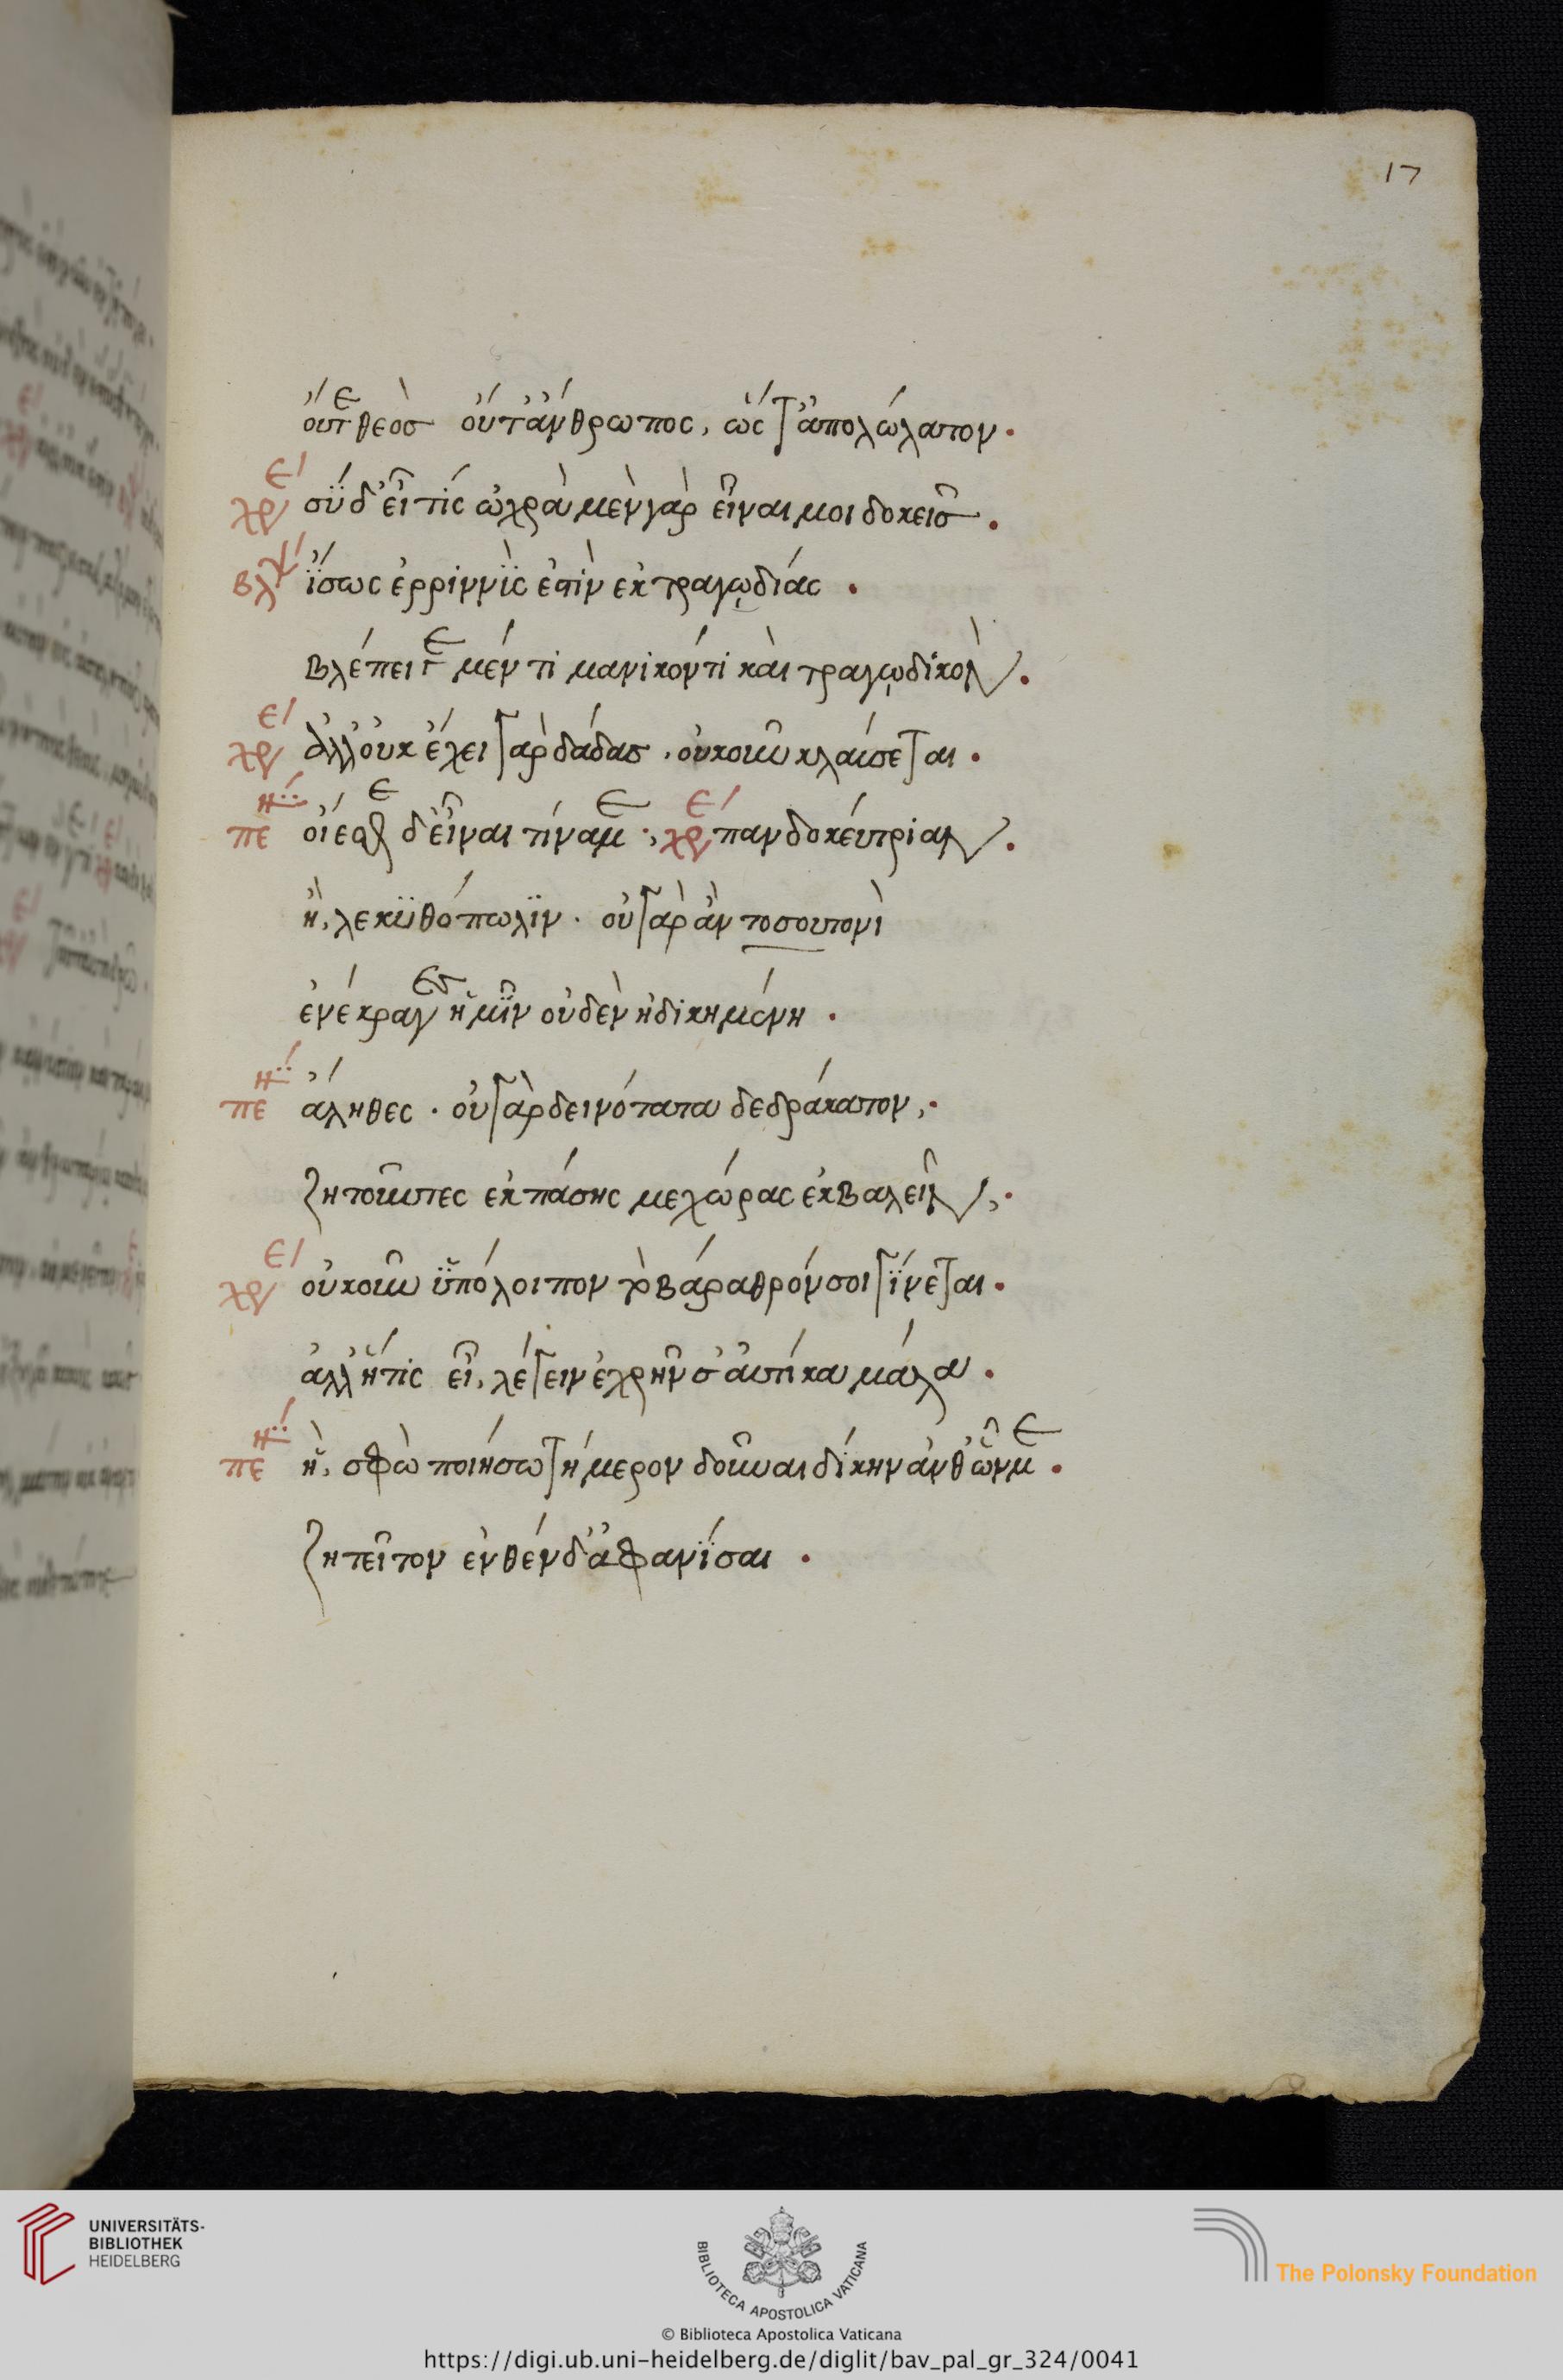 17
οὔτε θεὸς οὔτ' ἄνθρωπος, ὥστ' ἀπολώλατον.
χρε σὺ δ' εἶ τίς ὠχρὰ μὲν γὰρ εἶναι μοι δοκεῖς.
βλψ ἴσως ἐρριννῒς ἐστὶν ἐκ τραγῳδίας.
βλέπει γέ μέν τι μανικόν τι καὶ τραγῳδικόν.
χρε ἀλλ' οὐκ ἔχει γὰρ δάδας. οὐκοῦν κλαύσεται.
πενη οἴεσθε δ' εἶναι τίνα με· χρε πανδοκεύτριαν.
ἢ, λεκϋθόπωλϊν. οὐ γὰρ ἂν τοσουτονὶ
ἐνέκραγες ἡμῖν οὐδὲν ἠδικημένη.
πενη ἄληθες. οὐ γὰρ δεινότατα δεδράκατον,
ζητοῦντες ἐκ πάσης με χώρας ἐκβαλεῖν,
χρε οὐκοῦν ὑπόλοιπον τὸ βάραθρόν σοι γίνεται.
ἀλλ' ἥτις εἶ, λέγειν ἐχρῆν σ' αὐτίκα μάλα.
πενη ἣ, σφὼ ποιήσω τήμερον δοῦναι δίκην ἀνθ' ὧν με.
ζητεῖτον ἐνθένδ' ἀφανίσαι.
UNIVERSITÄTS-
BIBLIOTHEK
HEIDELBERG
BIBLIOTECA APOSTOLICA VATICANA
The Polonsky Foundation
© Biblioteca Apostolica Vaticana
https://digi.ub.uni-heidelberg.de/diglit/bav_pal_gr_324/0041